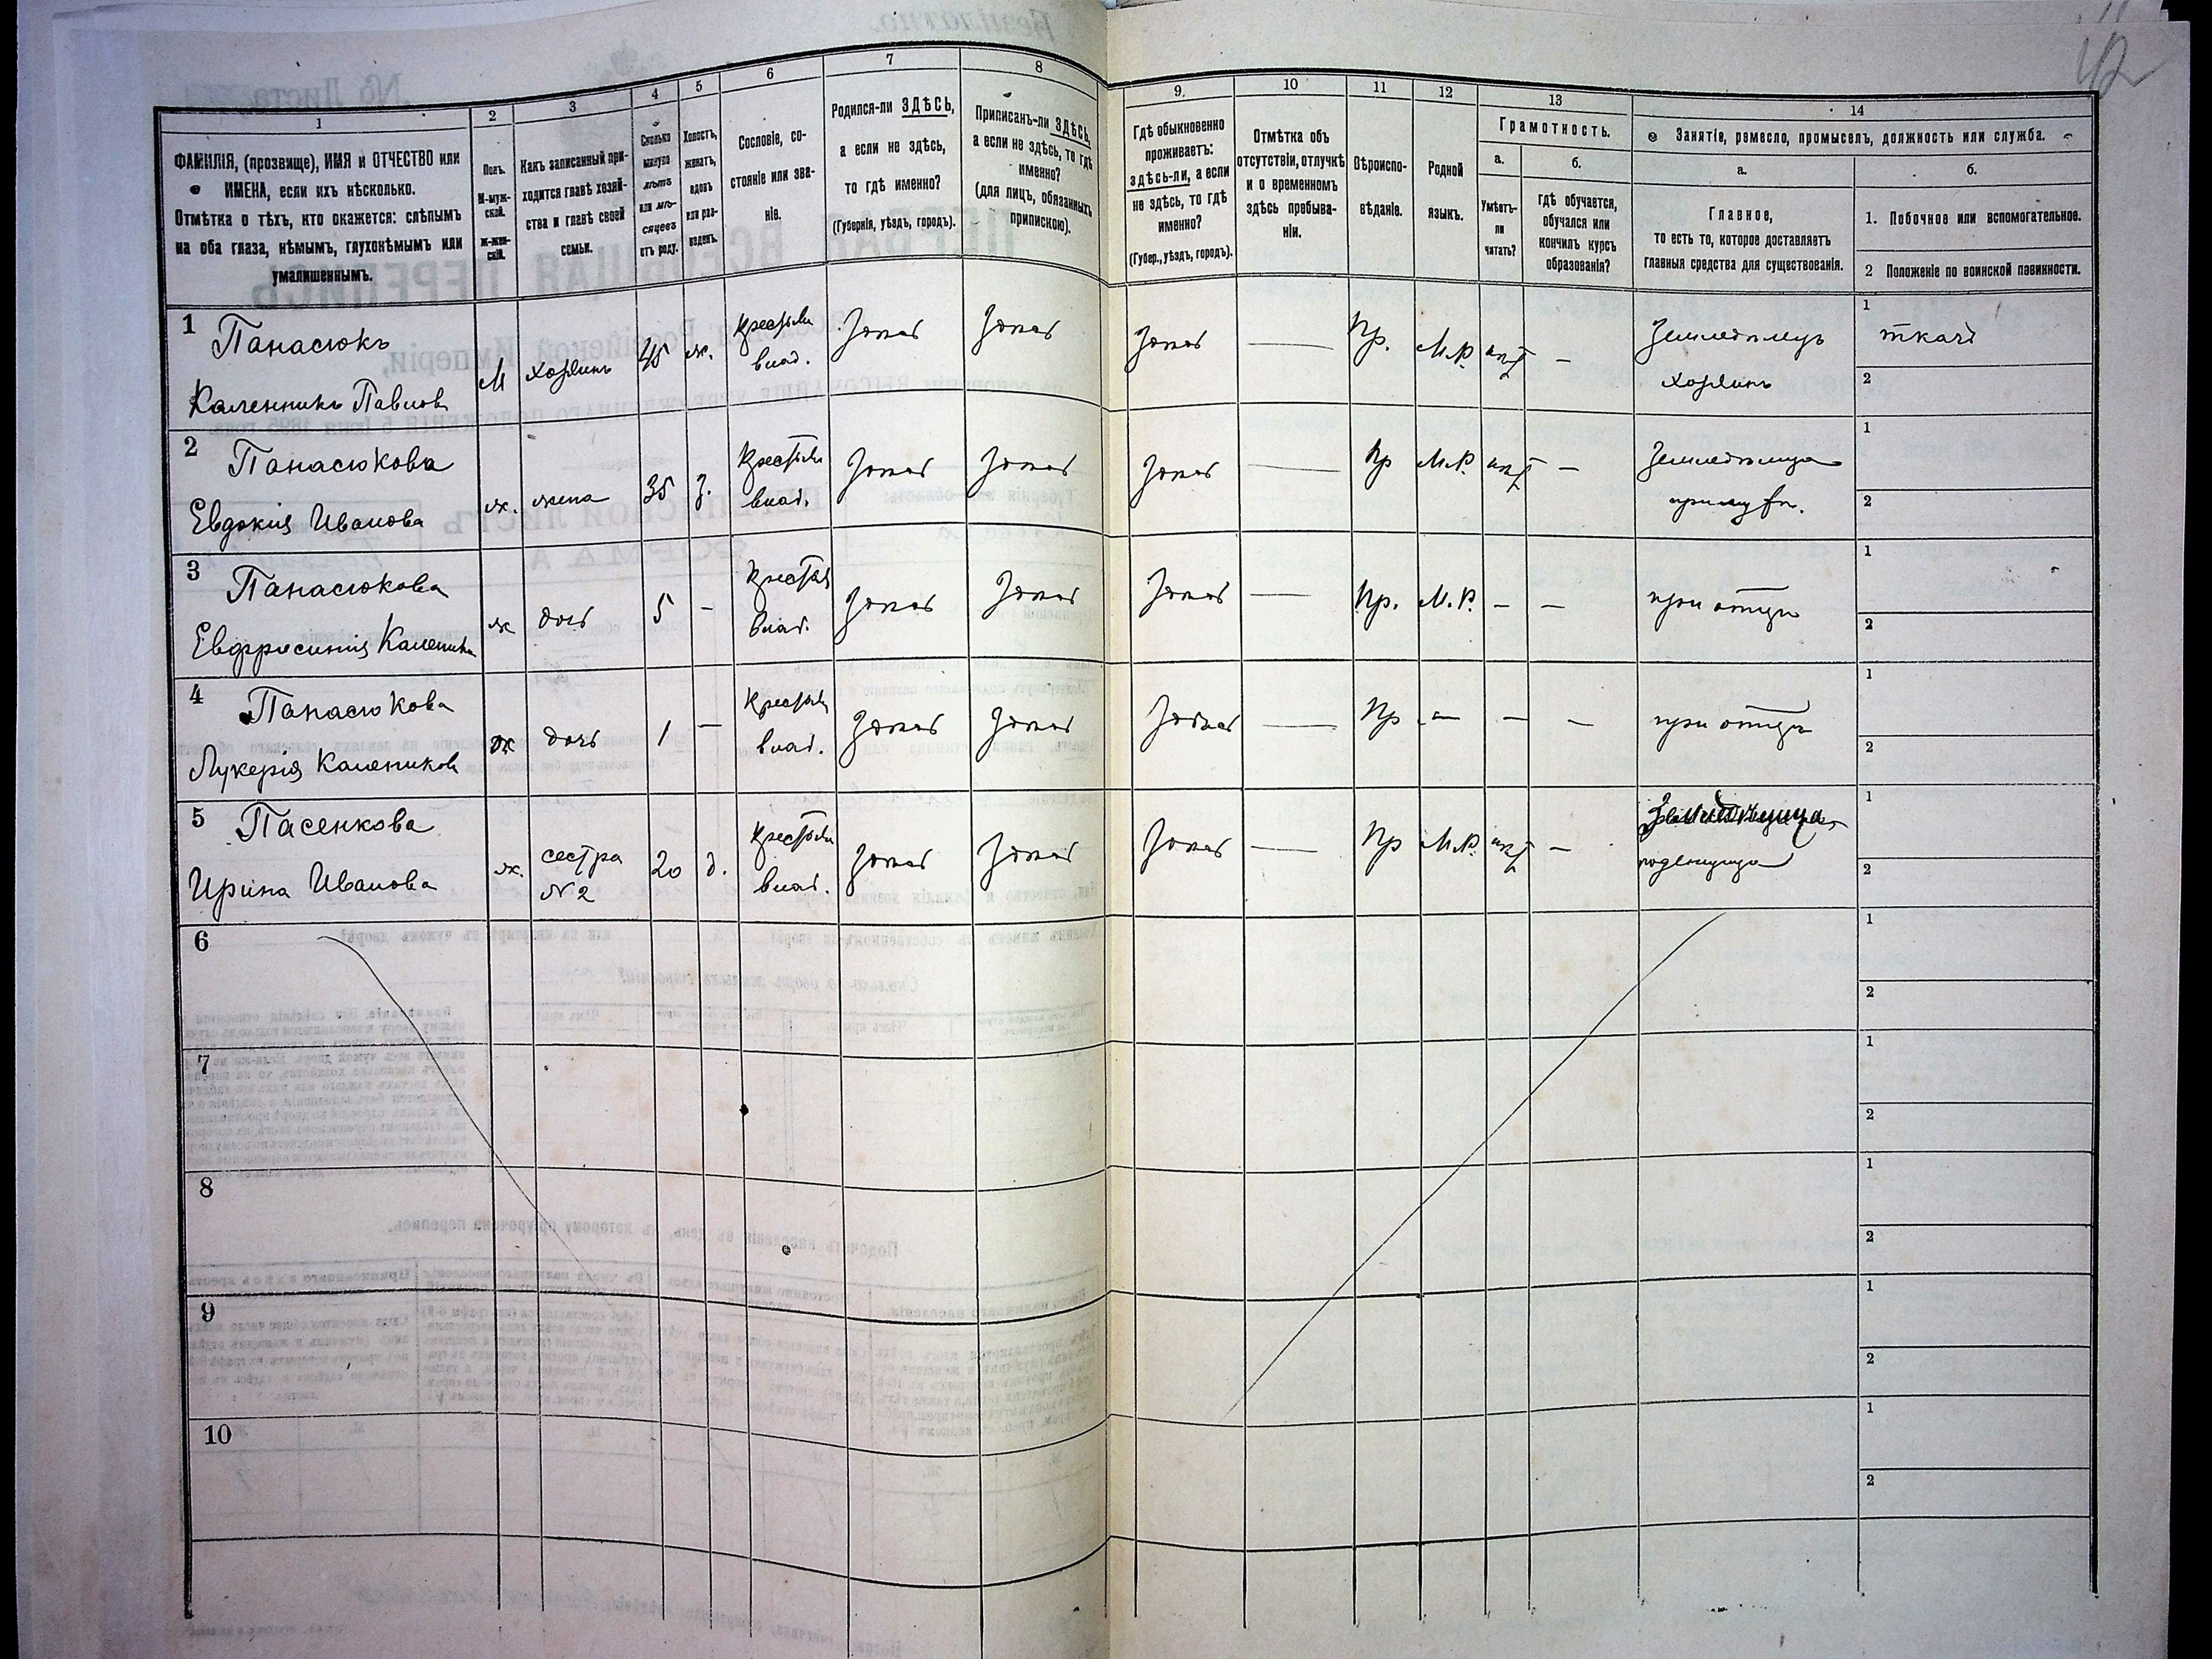 1
2
3
4
5
6
7
8
9.
10
11
12
13
14
ФАМИЛІЯ, (прозвище), ИМЯ и ОТЧЕСТВО или
ИМЕНА, если ихъ нѣсколько.
Отмѣтка о тѣхъ, кто окажется: слѣпымъ
на оба глаза, нѣмымъ, глухонѣмымъ или
умалишеннымъ.
Полъ.
М-муж-
ской.
ж-жен-
скій.
Какъ записанный при-
ходится главѣ хозяй-
ства и главѣ своей
семьи.
Сколько
минуло
лѣтъ
или мѣ-
сяцевъ
отъ роду.
Холостъ,
женатъ,
вдовъ
или раз-
веденъ.
Сословіе, со-
стояніе или зва-
ніе.
Родился-ли ЗДѢСЬ,
а если не здѣсь,
то гдѣ именно?
(Губернія, уѣздъ, городъ).
Приписанъ-ли ЗДѢСЬ,
а если не здѣсь, то гдѣ
именно?
(для лицъ, обязанныхъ
припискою).
Гдѣ обыкновенно
проживаетъ:
здѣсь-ли, а если
не здѣсь, то гдѣ
именно?
(Губер., уѣздъ, городъ).
Отмѣтка объ
отсутствіи, отлучкѣ
и о временномъ
здѣсь пребыва-
ніи.
Вѣроиспо-
вѣданіе.
Родной
языкъ.
Грамотность.
а.
Умѣетъ-
ли
читать?
б.
гдѣ обучается,
обучался или
кончилъ курсъ
образованія?
Занятіе, ремесло, промыселъ, должность или служба.
а.
Главное,
то есть то, которое доставляетъ
главныя средства для существованія.
б.
1. Побочное или вспомогательное.
2 Положеніе по воинской повинности.
1 Панасюкъ
Каленникъ Павлов
М хозяинъ 45 ж. Крестьян
влад. Здѣсь Здѣсь Здѣсь — Пр. М.Р. нѣт —
Земледѣлецъ
хозяинъ
1 ткачъ
2
2 Панасюкова
Евдокия Иванова
ж. жена 35 з. Крестьян
влад. Здѣсь Здѣсь Здѣсь — Пр М.Р. нѣт —
Земледѣлица
1
2
3 Панасюкова
Евфросинія Каленик
ж дочь 5 — Крестьян
влад. Здѣсь Здѣсь Здѣсь — Пр. М.Р. — —
при отцѣ
1
2
4 Панасюкова
Лукерія Калеников
ж дочь 1 — Крестьян
влад. Здѣсь Здѣсь Здѣсь — Пр — — —
при отцѣ
1
2
5 Пасенкова
Ирина Иванова
ж. сестра
№2 20 д. Крестьян
влад. Здѣсь Здѣсь Здѣсь — Пр М.Р. нѣт —
поденщица
1
2
6
1
2
7
1
2
8
1
2
9
1
2
10
1
2